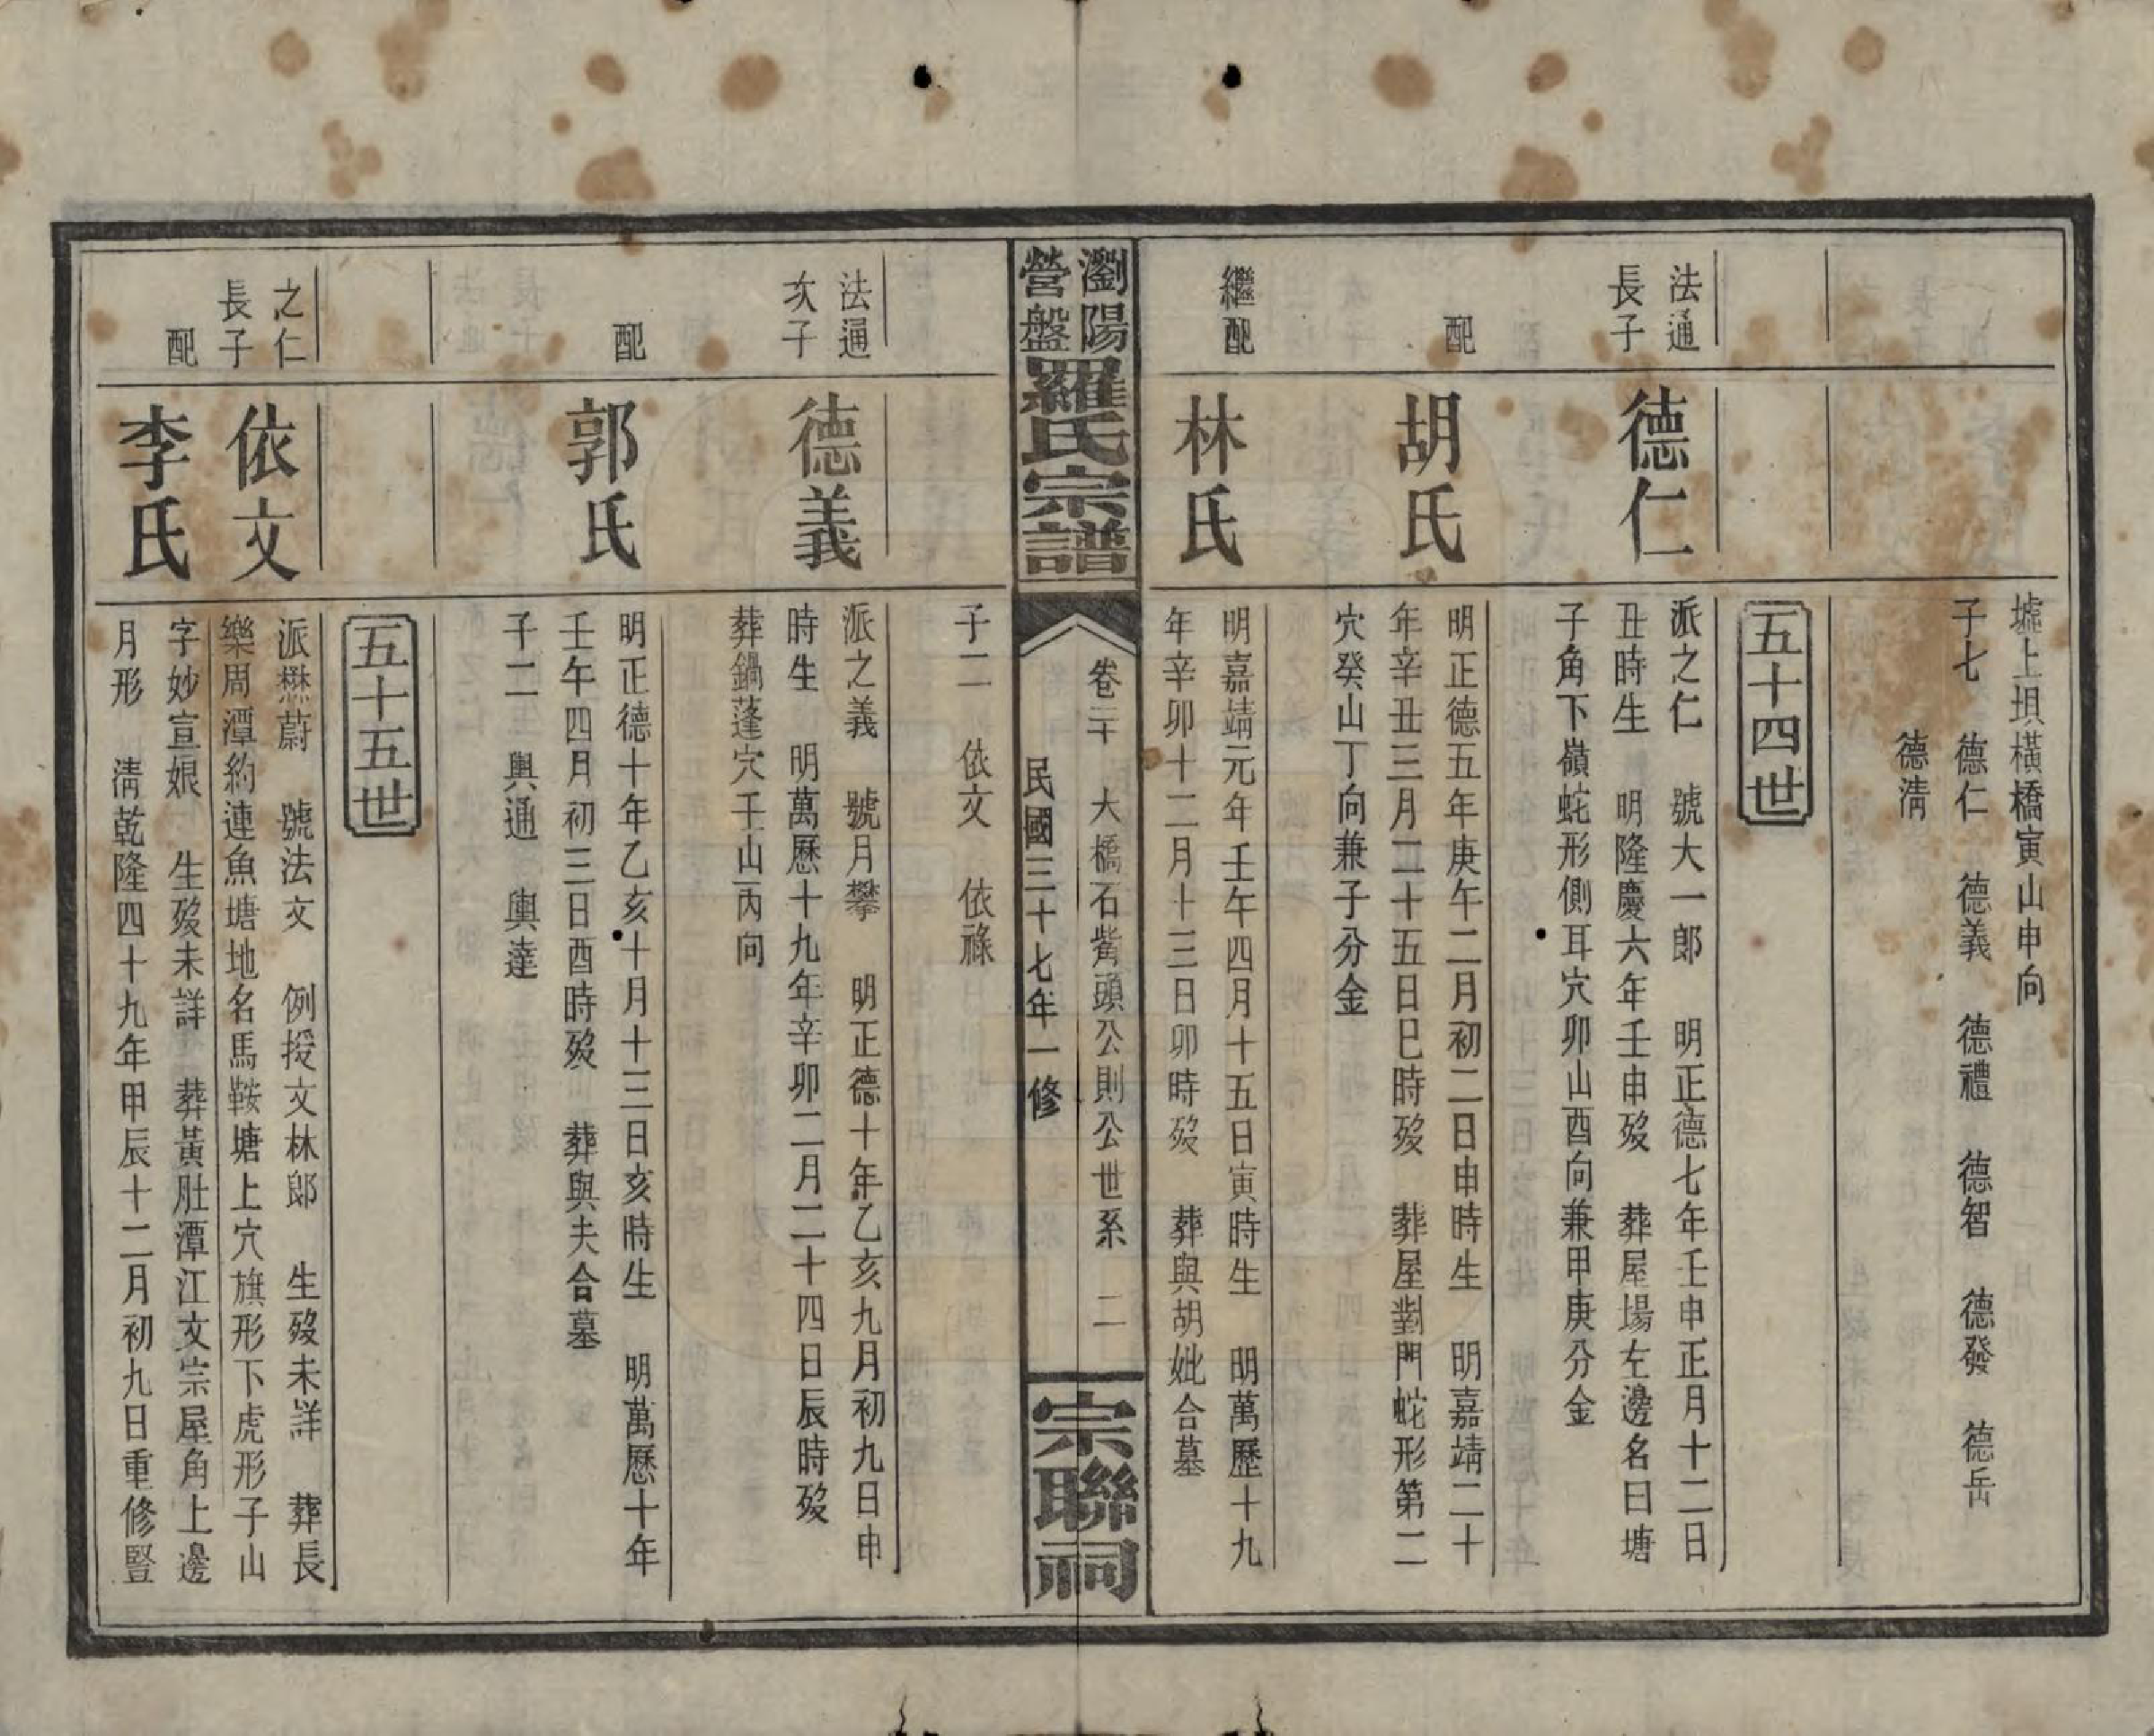 墟上垻橫橋寅山申向
子七　德仁　德義　德禮　德智　德發　德岳
德淸
五十四世
法通
長子
德仁
派之仁　號大一郎　明正德七年壬申正月十二日
丑時生　明隆慶六年壬申歿　葬屋場左邊名曰塘
子角下嶺蛇形側耳穴卯山酉向兼甲庚分金
配
胡氏
明正德五年庚午二月初二日申時生　明嘉靖二十
年辛丑三月二十五日巳時歿　葬屋對門蛇形第二
穴癸山丁向兼子分金
繼配
林氏
明嘉靖元年壬午四月十五日寅時生　明萬歷十九
年辛卯十二月十三日卯時歿　葬與胡妣合墓
瀏陽
營盤
羅氏宗譜
卷二　大橋石觜頭公則公世系　二
民國三十七年一修
宗聯祠
子二　依文　依祿
法通
次子
德義
派之義　號月攀　明正德十年乙亥九月初九日申
時生　明萬歷十九年辛卯二月二十四日辰時歿
葬鍋蓬穴壬山丙向
配
郭氏
明正德十年乙亥十月十三日亥時生　明萬歷十年
壬午四月初三日酉時歿　葬與夫合墓
子二　輿通　輿達
五十五世
之仁
長子
依文
派懋蔚　號法文　例授文林郎　生歿未詳　葬長
樂周潭約連魚塘地名馬鞍塘上穴旗形下虎形子山
配
李氏
字妙宣娘　生歿未詳　葬黃肚潭江文宗屋角上邊
月形　淸乾隆四十九年甲辰十二月初九日重修豎